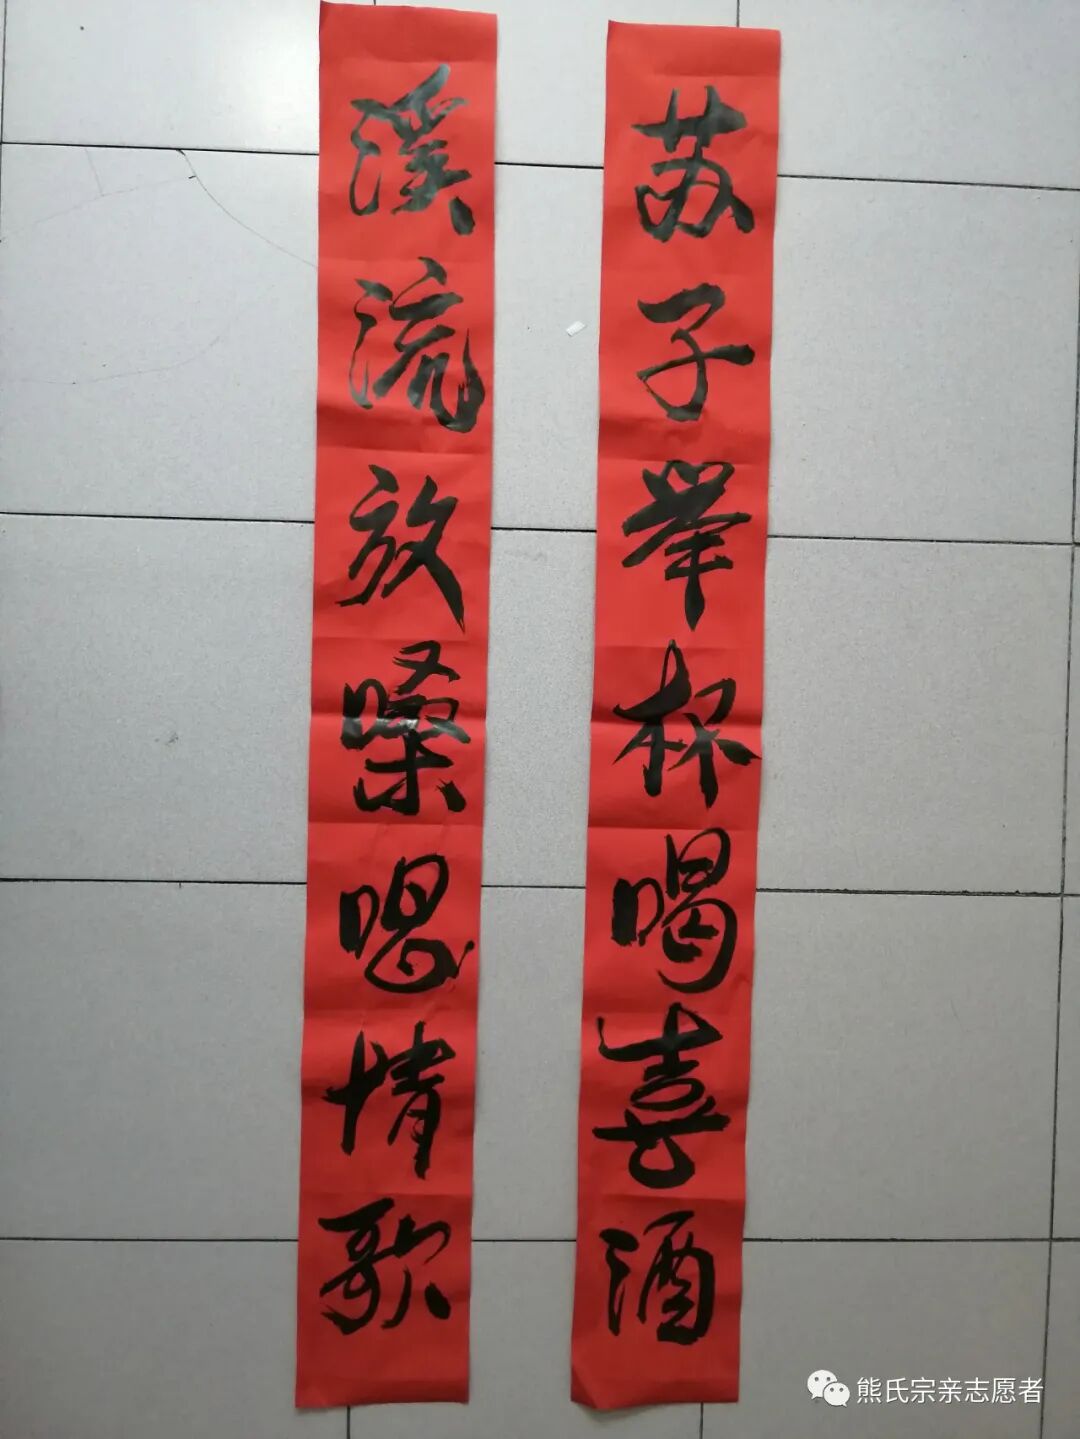 苏子举杯喝喜酒
溪流放嗓唱情歌
熊氏宗亲志愿者